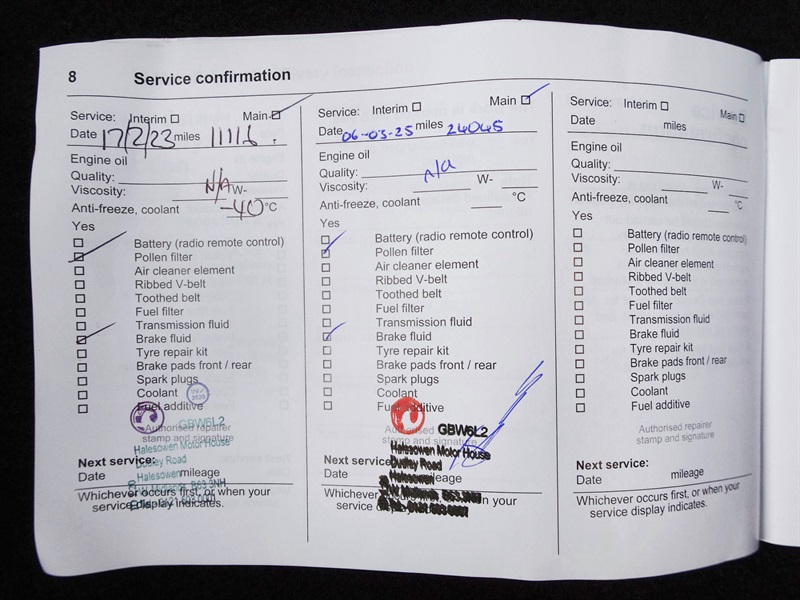 8 Service confirmation
Service: Interim Main
Date 17/2/23 miles 11116.
Engine oil
Quality:
Viscosity: N/A W-
Anti-freeze, coolant -40 °C
Yes
Battery (radio remote control)
Pollen filter
Air cleaner element
Ribbed V-belt
Toothed belt
Fuel filter
Transmission fluid
Brake fluid
Tyre repair kit
Brake pads front / rear
Spark plugs
Coolant
Fuel additive
GBW6L2
Authorised repairer
stamp and signature
Halesowen Motor House
Dudley Road
Halesowen
B63 3NH
Next service:
Date mileage
Whichever occurs first, or when your
service display indicates.
Service: Interim Main
Date 06-03-25 miles 24045
Engine oil
Quality:
Viscosity: n/a W-
Anti-freeze, coolant °C
Yes
Battery (radio remote control)
Pollen filter
Air cleaner element
Ribbed V-belt
Toothed belt
Fuel filter
Transmission fluid
Brake fluid
Tyre repair kit
Brake pads front / rear
Spark plugs
Coolant
Fuel additive
GBW6L2
Authorised
stamp and signature
Halesowen Motor House
Dudley Road
Halesowen
Next service:
Date mileage
Whichever occurs first, or when your
service display indicates.
Service: Interim Main
Date miles
Engine oil
Quality:
Viscosity: W-
Anti-freeze, coolant °C
Yes
Battery (radio remote control)
Pollen filter
Air cleaner element
Ribbed V-belt
Toothed belt
Fuel filter
Transmission fluid
Brake fluid
Tyre repair kit
Brake pads front / rear
Spark plugs
Coolant
Fuel additive
Authorised repairer
stamp and signature
Next service:
Date mileage
Whichever occurs first, or when your
service display indicates.